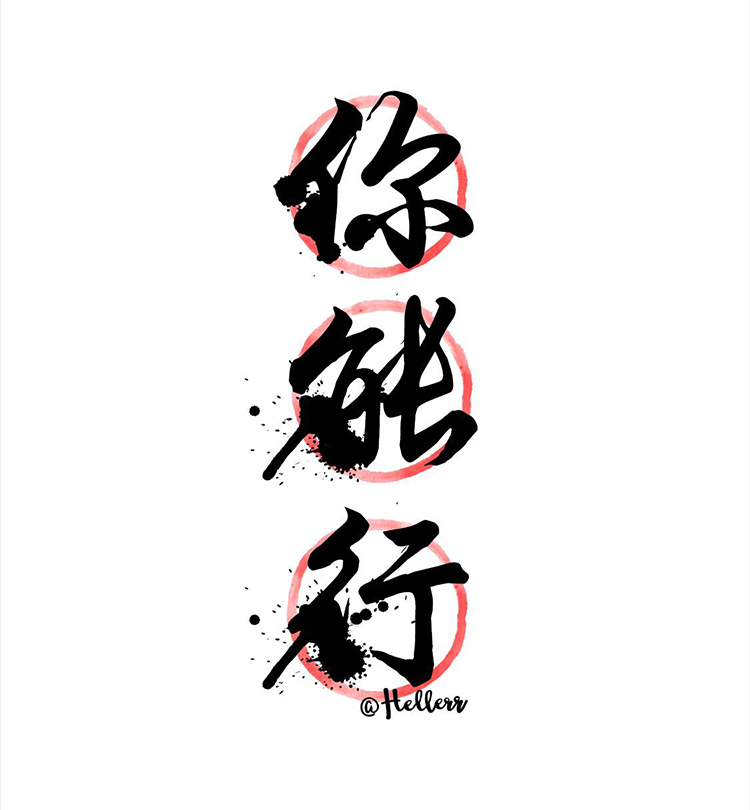 你
能
行
@Hellerr